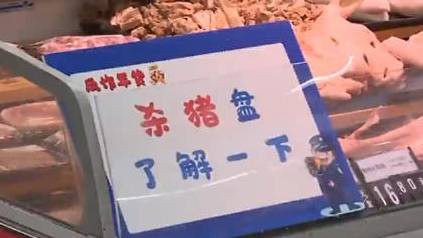 反诈年货
杀猪盘
了解一下
16.80